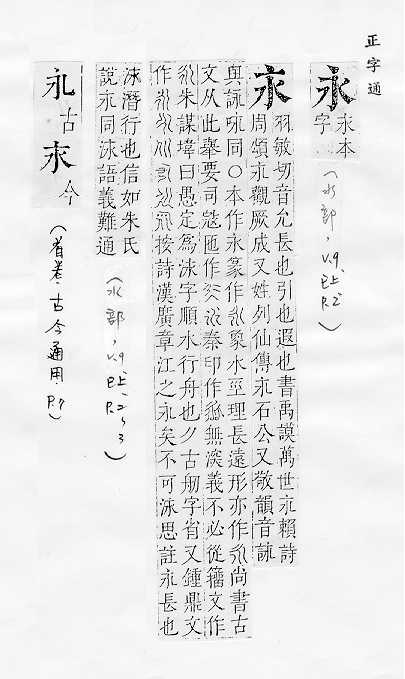 正字通
永 永本
字
(水部, v.9, 巳上, P.2)
永 羽敏切音允長也引也遐也書禹謨萬世永賴詩
周頌永觀厥成又姓列仙傳永石公又敬韻音詠
與詠咏同○本作永篆作象水巠理長遠形亦作尚書古
文从此舉要司寇匜作秦印作無深義不必從籀文作
朱謀㙔曰愚定爲泳字順水行舟也夕古舠字省又鍾鼎文
作按詩漢廣章江之永矣不可泳思註永長也
泳潛行也信如朱氏
說永同泳語義難通
(水部, v.9, 巳上, P.2~3)
永古永今
(首卷.古今通用 P.7)